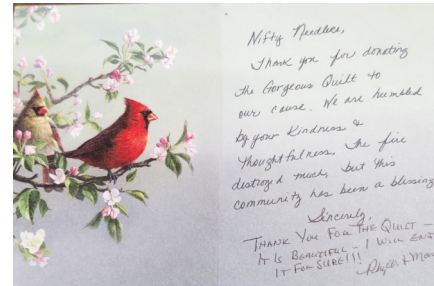 Nifty Needles,
Thank you for donating
the Gorgeous Quilt to
our cause. We are humbled
by your Kindness &
Thoughtfulness. The fire
destroyed much, but this
community has been a blessing
Sincerely,
THANK YOU FOR THE QUILT -
IT IS BEAUTIFUL - I WILL
IT FOR SURE!!!